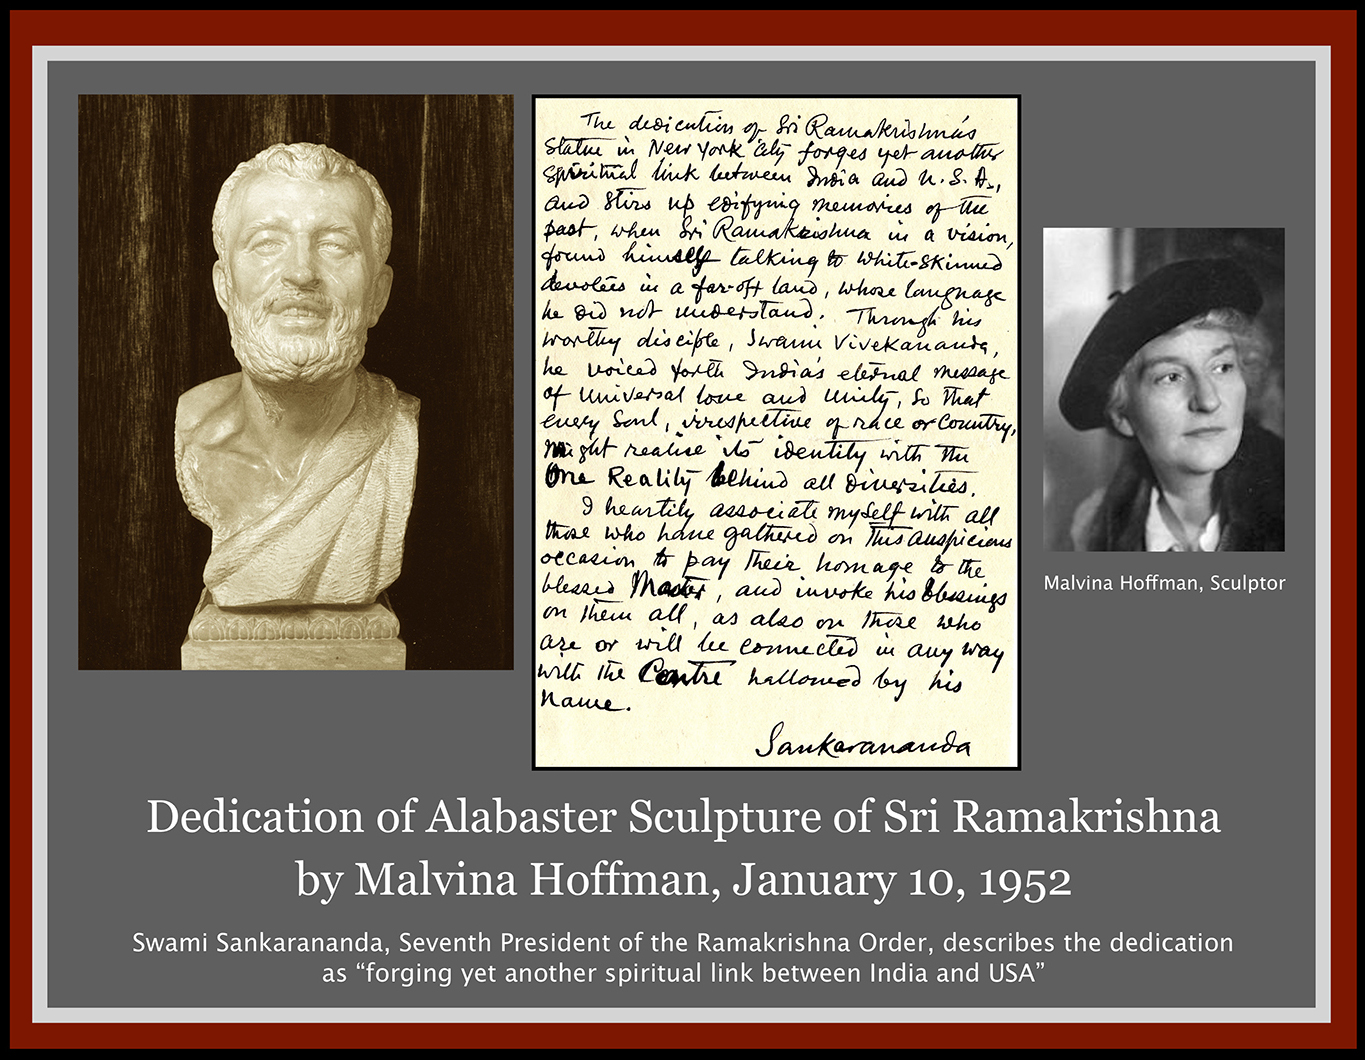 The dedication of Sri Ramakrishna's
Statue in New York City forges yet another
spiritual link between India and U.S.A.,
and stirs up edifying memories of the
past, when Sri Ramakrishna in a vision,
found himself talking to white-skinned
devotees in a far-off land, whose language
he did not understand. Through his
worthy disciple, Swami Vivekananda,
he voiced forth India's eternal message
of universal love and unity, so that
every soul, irrespective of race or country,
might realise its identity with the
One Reality behind all diversities.
I heartily associate myself with all
those who have gathered on this auspicious
occasion to pay their homage to the
blessed Master, and invoke his blessings
on them all, as also on those who
are or will be connected in any way
with the Centre hallowed by his
name.
Sankarananda
Malvina Hoffman, Sculptor
Dedication of Alabaster Sculpture of Sri Ramakrishna
by Malvina Hoffman, January 10, 1952
Swami Sankarananda, Seventh President of the Ramakrishna Order, describes the dedication
as “forging yet another spiritual link between India and USA”